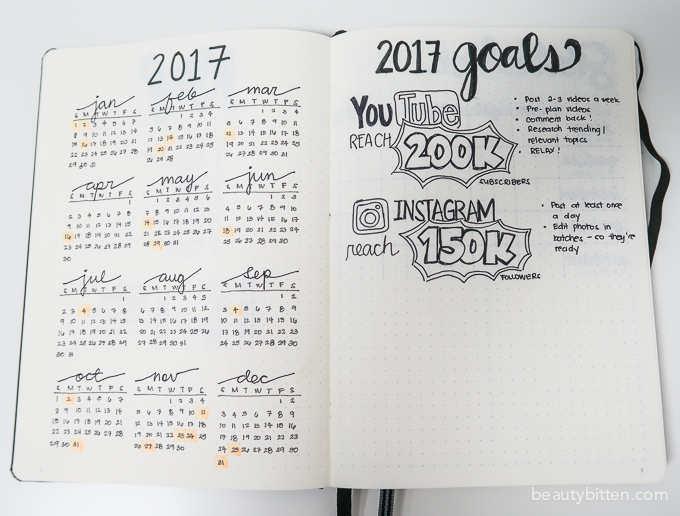 2017
jan
S M T W T F S
1 2 3 4 5 6 7
8 9 10 11 12 13 14
15 16 17 18 19 20 21
22 23 24 25 26 27 28
29 30 31
feb
S M T W T F S
1 2 3 4
5 6 7 8 9 10 11
12 13 14 15 16 17 18
19 20 21 22 23 24 25
26 27 28
mar
S M T W T F S
1 2 3 4
5 6 7 8 9 10 11
12 13 14 15 16 17 18
19 20 21 22 23 24 25
26 27 28 29 30 31
apr
S M T W T F S
1
2 3 4 5 6 7 8
9 10 11 12 13 14 15
16 17 18 19 20 21 22
23 24 25 26 27 28 29
30
may
S M T W T F S
1 2 3 4 5 6
7 8 9 10 11 12 13
14 15 16 17 18 19 20
21 22 23 24 25 26 27
28 29 30 31
jun
S M T W T F S
1 2 3
4 5 6 7 8 9 10
11 12 13 14 15 16 17
18 19 20 21 22 23 24
25 26 27 28 29 30
jul
S M T W T F S
1
2 3 4 5 6 7 8
9 10 11 12 13 14 15
16 17 18 19 20 21 22
23 24 25 26 27 28 29
30 31
aug
S M T W T F S
1 2 3 4 5
6 7 8 9 10 11 12
13 14 15 16 17 18 19
20 21 22 23 24 25 26
27 28 29 30 31
sep
S M T W T F S
1 2
3 4 5 6 7 8 9
10 11 12 13 14 15 16
17 18 19 20 21 22 23
24 25 26 27 28 29 30
oct
S M T W T F S
1 2 3 4 5 6 7
8 9 10 11 12 13 14
15 16 17 18 19 20 21
22 23 24 25 26 27 28
29 30 31
nov
S M T W T F S
1 2 3 4
5 6 7 8 9 10 11
12 13 14 15 16 17 18
19 20 21 22 23 24 25
26 27 28 29 30
dec
S M T W T F S
1 2
3 4 5 6 7 8 9
10 11 12 13 14 15 16
17 18 19 20 21 22 23
24 25 26 27 28 29 30
31
2017 goals
YOU Tube
REACH 200K
SUBSCRIBERS
• Post 2-3 videos a week
• Pre-plan videos
• comment back!
• Research trending/
relevant topics
• RELAX!
INSTAGRAM
reach 150K
FOLLOWERS
• Post at least one
a day
• Edit photos in
batches - so they're
ready
beautybitten.com